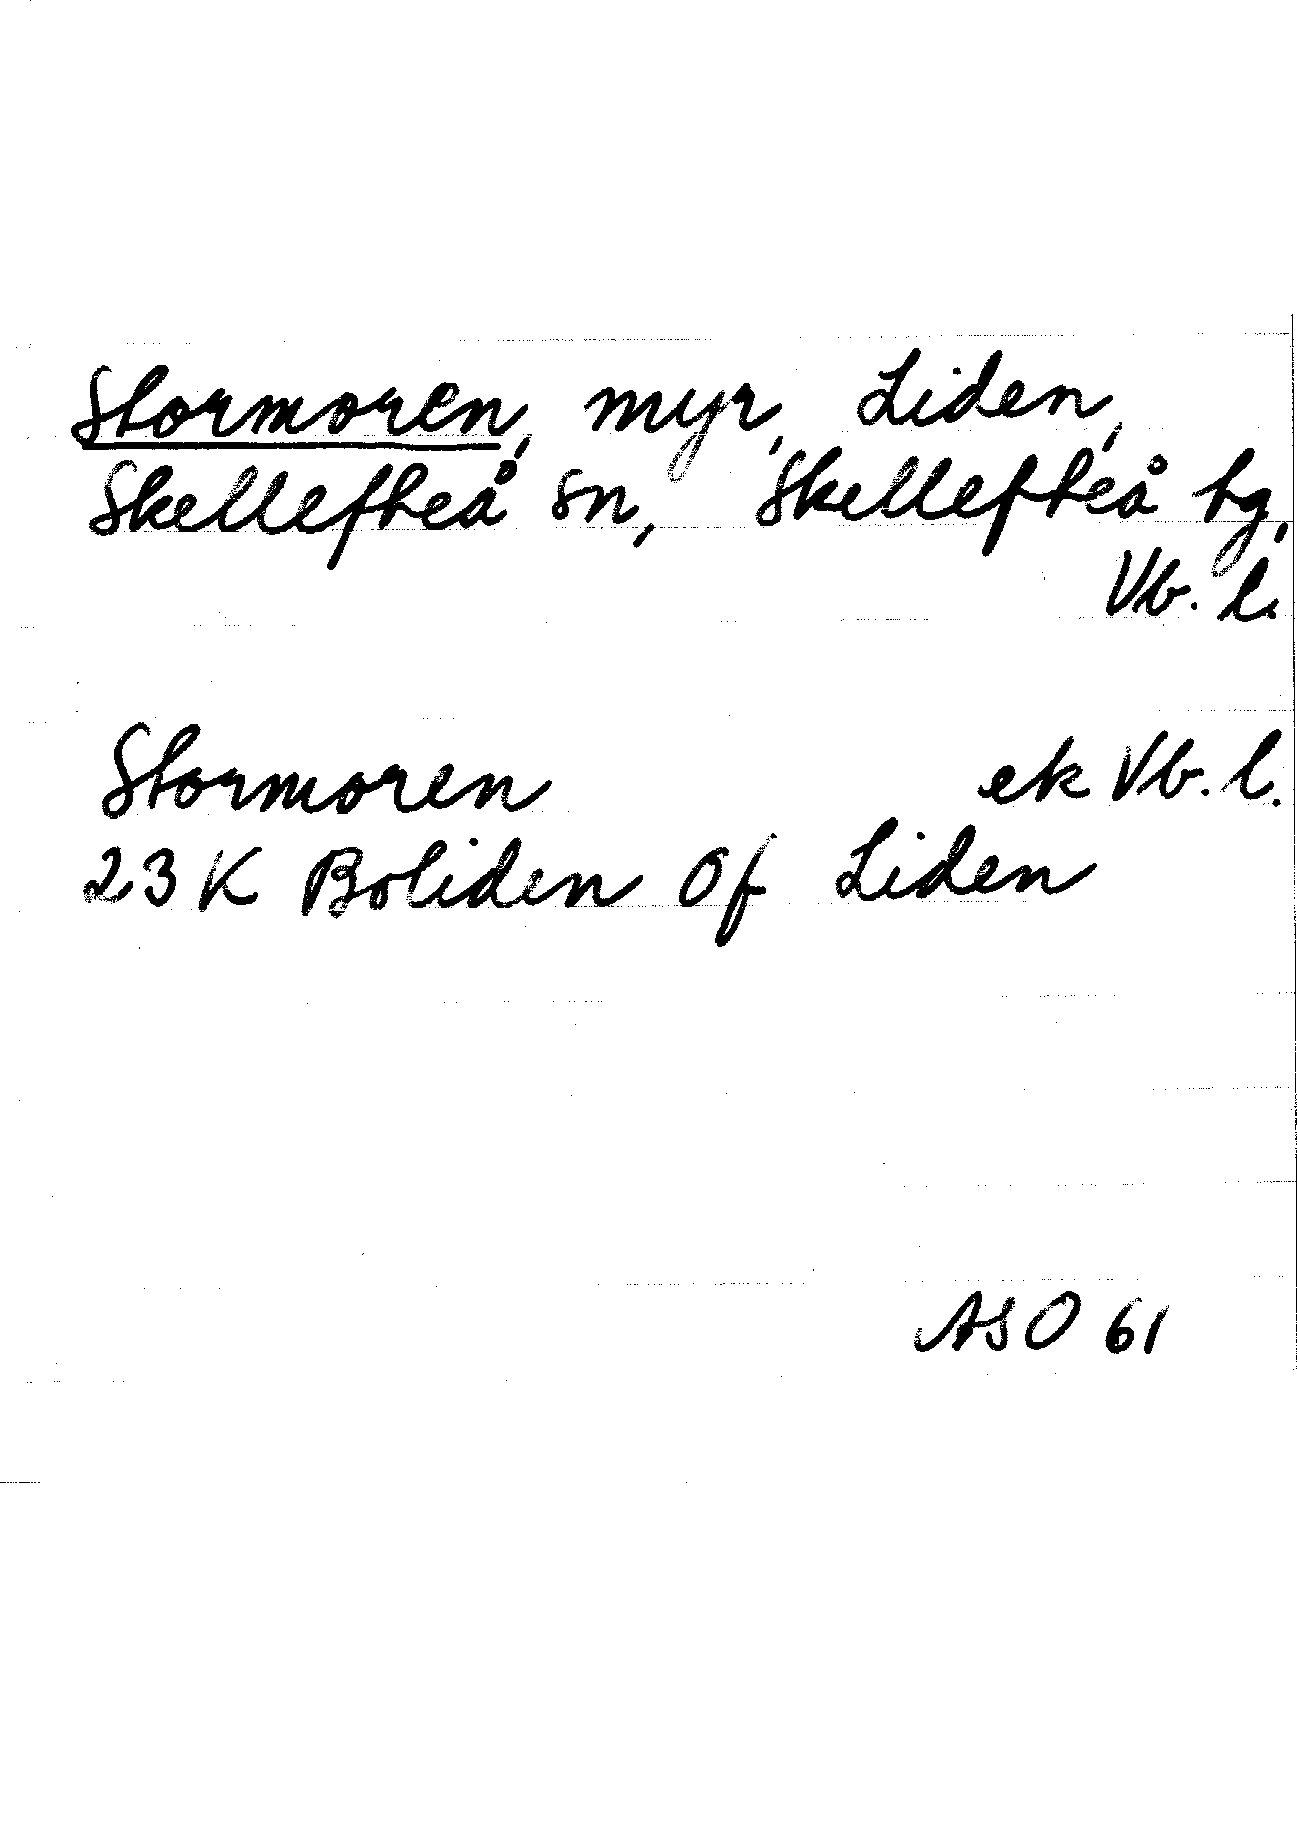 Stormoren, myr, Liden,
Skellefteå sn, Skellefteå tg,
Vb. l.
Stormoren ek Vb. l.
23 K Boliden Of Liden
ASO 61